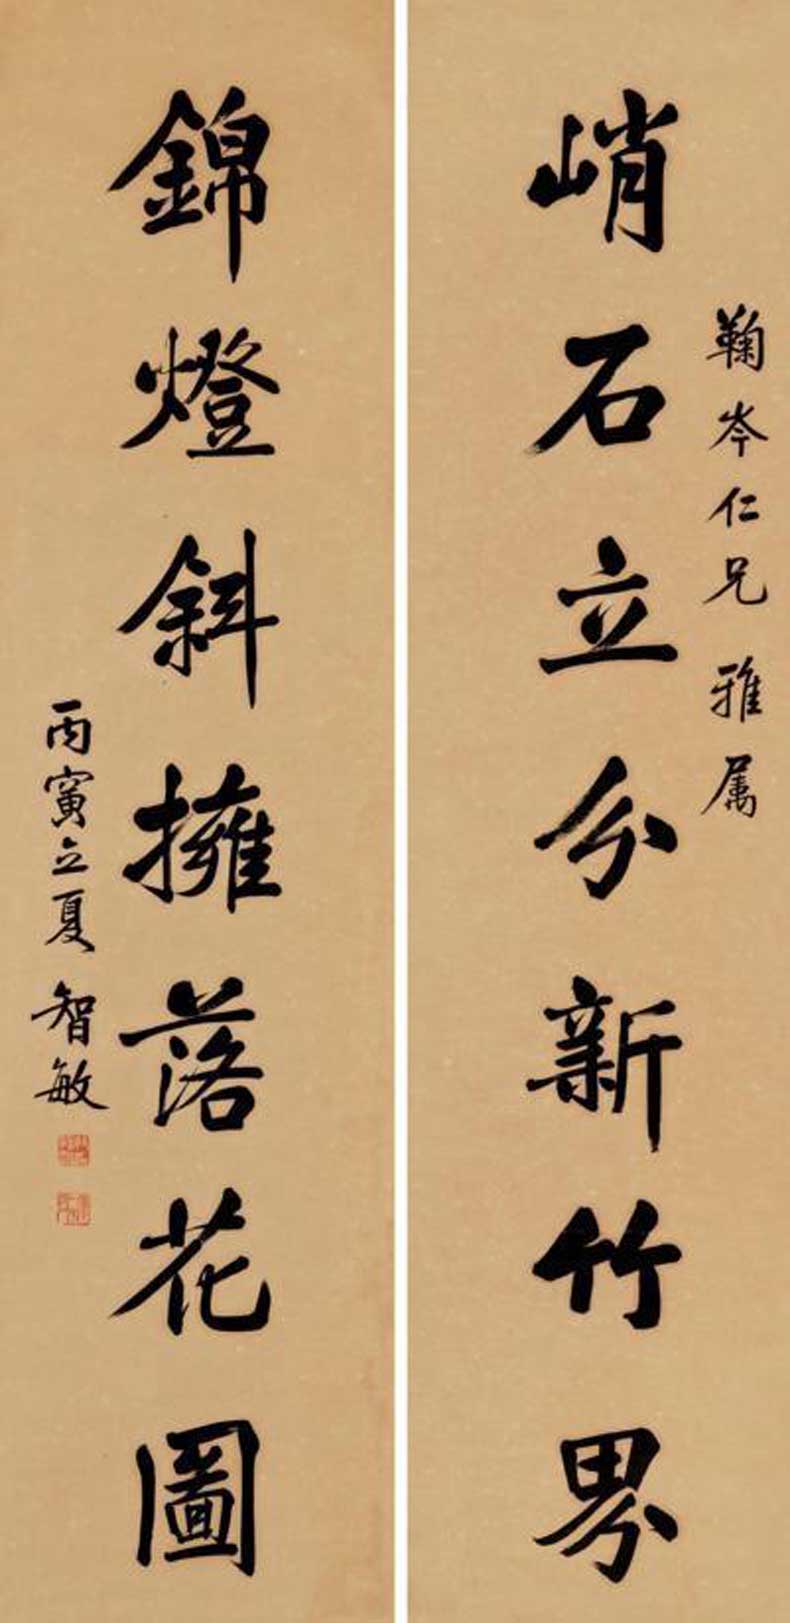 鞠岑仁兄雅属
峭石立分新竹界
錦燈斜擁落花圖
丙寅立夏智敏